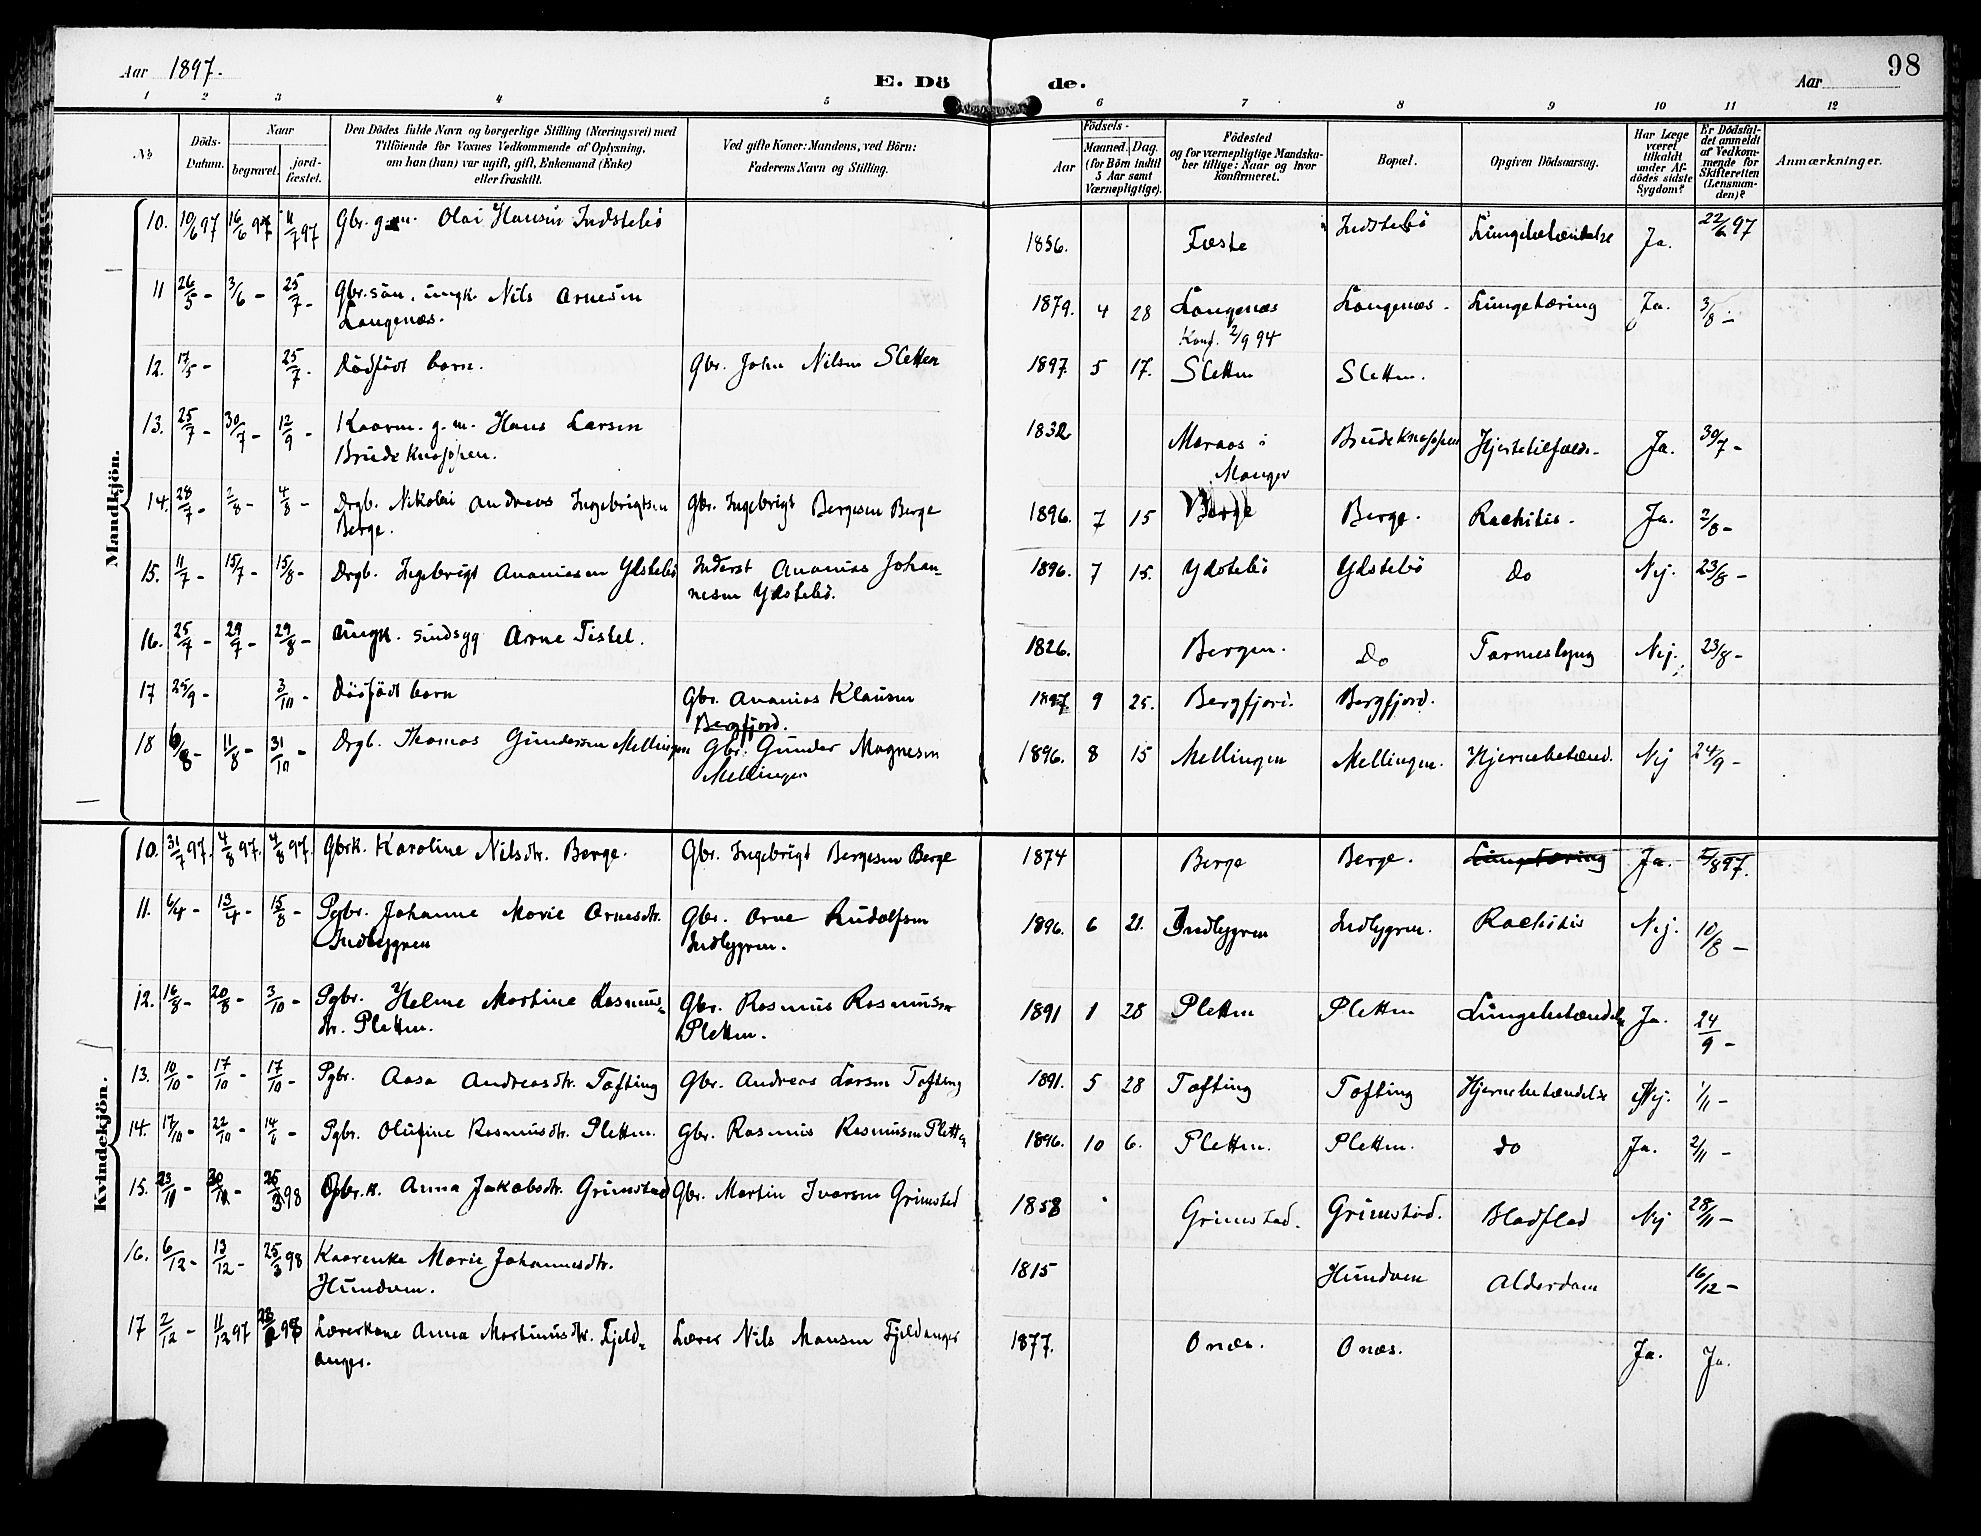 Aar 1897.
E. Dö de.
Aar
98
1 2 3 4 5 6 7 8 9 10 11 12
No
Döds-Datum.
Naar
begravet.
jord-fæstet.
Den Dödes fulde Navn og borgerlige Stilling (Næringsvei) med
Tilföiende for Voxnes Vedkommende af Oplysning,
om han (hun) var ugift, gift, Enkemand (Enke)
eller fraskilt.
Ved gifte Koner: Mandens, ved Börn:
Faderens Navn og Stilling.
Födsels-
Aar
Maaned. Dag.
(for Börn indtil
5 Aar samt
Værnepligtige).
Födested
og for værnepligtige Mandska-
ber tillige: Naar og hvor
konfirmeret.
Bopæl.
Opgiven Dödsaarsag.
Har Læge
været
tilkaldt
under Af-
dödes sidste
Sygdom?
Er Dödsfal-
det anmeldt
af Vedkom-
mende for
Skifteretten
(Lensman-
den)?
Anmærkninger.
Mandkjön.
10. 10/6 97 16/6 97 11/7 97 Gbr. g.m. Olai Hansen Indstebö 1856. Fæste Indstebö Lungebetændelse Ja. 22/6 97
11 26/5 - 3/6 - 25/7 - Gbr.sön. ungk. Nils Arnesen 1879. 4 28 Langenæs Langenæs - Lungetæring Ja. 3/8 -
Langenæs. Konf. 2/9 94
12. 17/5 - 25/7 - Dödfödt barn. Gbr. John Nilsen Sletten 1897. 5 17. Sletten Sletten.
13. 25/7 - 30/7 - 12/9 - Kaarm. g.m. Hans Larsen 1832 Maraas i Brudeknappen Hjertetilfælde - Ja. 30/7 -
Brudeknappen. Manger
14. 28/7 - 2/8 - 4/8 - Drgb. Nikolai Andreas Ingebrigtsen Gbr. Ingebrigt Bergesen Berge 1896. 7 15 Berge Berge. Rachitis. Ja. 2/8 -
Berge.
15. 11/7 - 15/7 - 15/8 - Drgb. Ingebrigt Ananiasen Ydstebö Inderst Ananias Johan- 1896. 7 15. Ydstebö Ydstebö Do Nej. 23/8 -
nesen Ydstebö.
16. 25/7 - 29/7 - 29/8 - Ungk. sindsyg Arne Tistel. 1826. Bergen. Do Tarmeslyng Nej. 23/8 -
17 25/9 - 3/10 - Dödfödt barn Gbr. Ananias Klausen 1897 9 25. Bergfjord. Bergfjord.
Bergfjord.
18 6/8 - 11/8 - 31/10 - Drgb. Thomas Gundersen Mellingen Gbr. Gunder Magnesen 1896. 8 15 Mellingen Mellingen. Hjernebetænd. Nej 24/9 -
Mellingen
Kvindekjön.
10. 31/7 97. 4/8 97. 4/8 97. Gbrk. Karoline Nilsdtr. Berge. Gbr. Ingebrigt Bergesen Berge 1874 Berge Berge. Lungetæring Ja. 5/8 97.
11. 6/4 - 13/4 - 15/8 - Pgbr. Johanne Marie Arnesdtr. Gbr. Arne Rudolfsen 1896. 6 21. Indbygren Indbygren. Rachitis Nej. 10/8 -
Indbygren Indbygren.
12. 16/8 - 20/8 - 3/10 - Pgbr. Helene Martine Rasmus= Gbr. Rasmus Rasmusen 1891 1 28 Pletten Pletten Lungebetændelse Ja. 24/9 -
dtr. Pletten. Pletten.
13. 10/10 - 17/10 - 17/10 - Pgbr. Aasa Andreasdtr. Tofting Gbr. Andreas Larsen Tofting 1891. 5 28 Tofting Tofting Hjernebetændelse Nej. 1/11 -
14. 17/10 - 22/10 - 14/6 - Pgbr. Olufine Rasmusdtr. Pletten. Gbr. Rasmus Rasmusen Pletten 1896. 10 6. Pletten. Pletten. do Ja. 2/11 -
15. 23/11 - 30/11 - 25/3 98 Gbr.k. Anna Jakobsdtr. Grimstad Gbr. Martin Ivarsen Grimstad 1858 Grimstad. Grimstad. Blodflod Nej 28/11 -
16. 6/12 - 13/12 - 25/3 98 Kaarenke Marie Johannesdtr. 1815 Hundven Alderdom 16/12 -
Hundven.
17 2/12 - 11/12 97 98 Lærerkone Anna Martinusdtr. Fjeld= Lærer Nils Monsen Fjeldanger 1877. Onæs. Onæs. Ja. Ja.
anger.